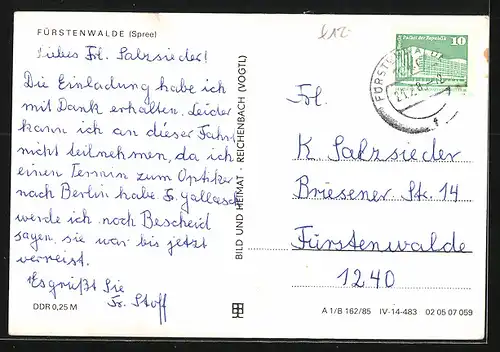 FÜRSTENWALDE (Spree)
Liebes Frl. Salzsieder!
Die Einladung habe ich
mit Dank erhalten. Leider
kann ich an dieser Fahrt
nicht teilnehmen, da ich
einen Termin zum Optiker
nach Berlin habe. Fr. Gallasch
werde ich noch Bescheid
sagen, sie war bis jetzt
verreist.
Es grüßt Sie
Fr. Stoff
DDR 0,25 M
BILD UND HEIMAT · REICHENBACH (VOGTL)
FÜRSTENWALDE
Palast der Republik 10
Frl.
K Salzsieder
Briesener Str. 14
Fürstenwalde
1240
A 1/B 162/85 IV-14-483 02 05 07 059